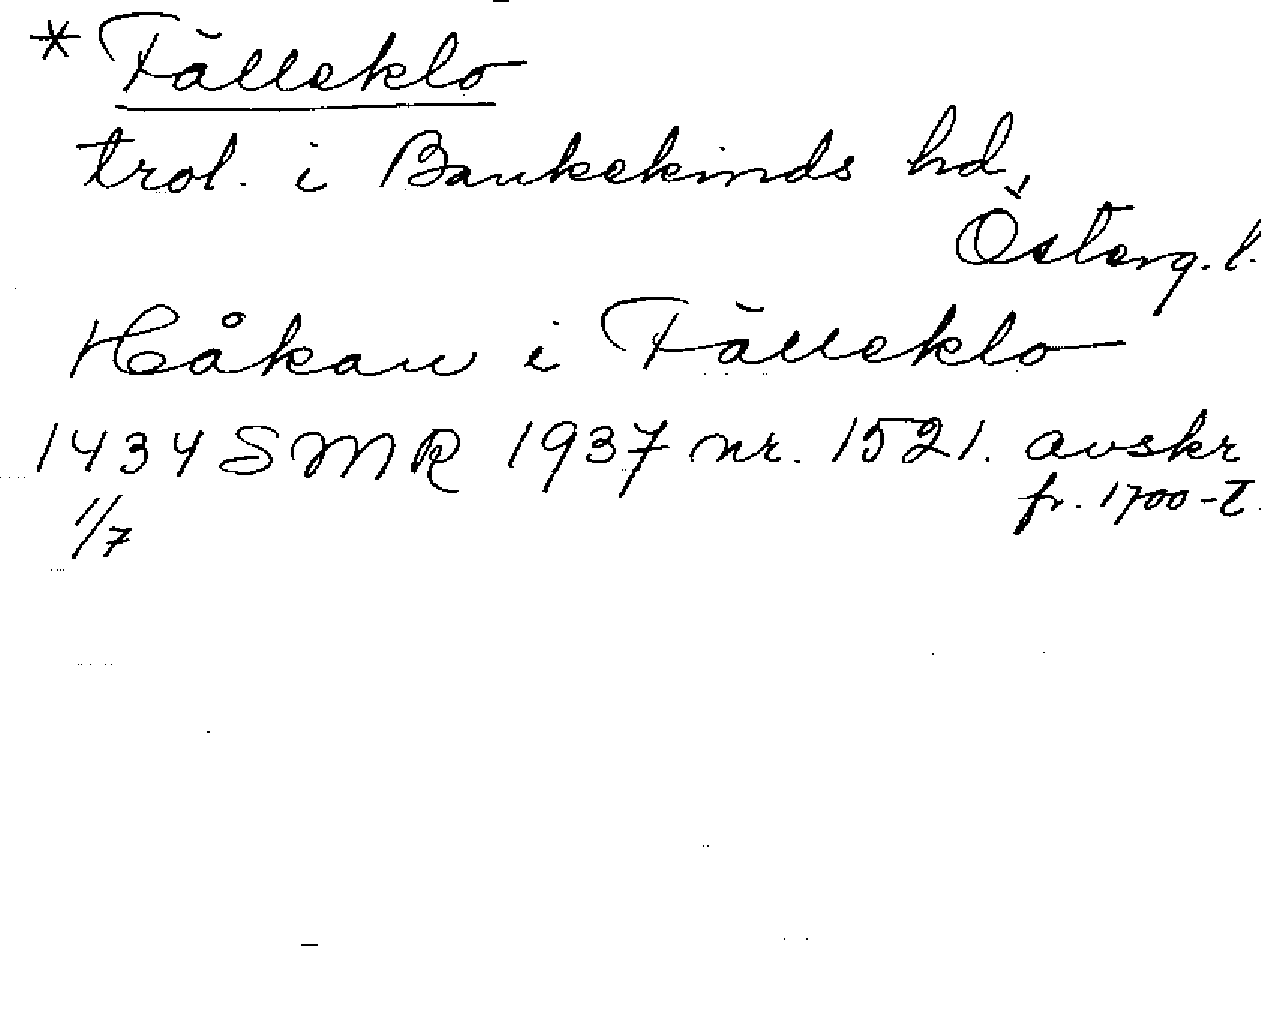 * Fälleklo
trol. i Bankekinds hd,
Österg. l.
Håkan i Fälleklo
1434 SMR 1937 nr. 1521. avskr
1/7 fr. 1700-t.